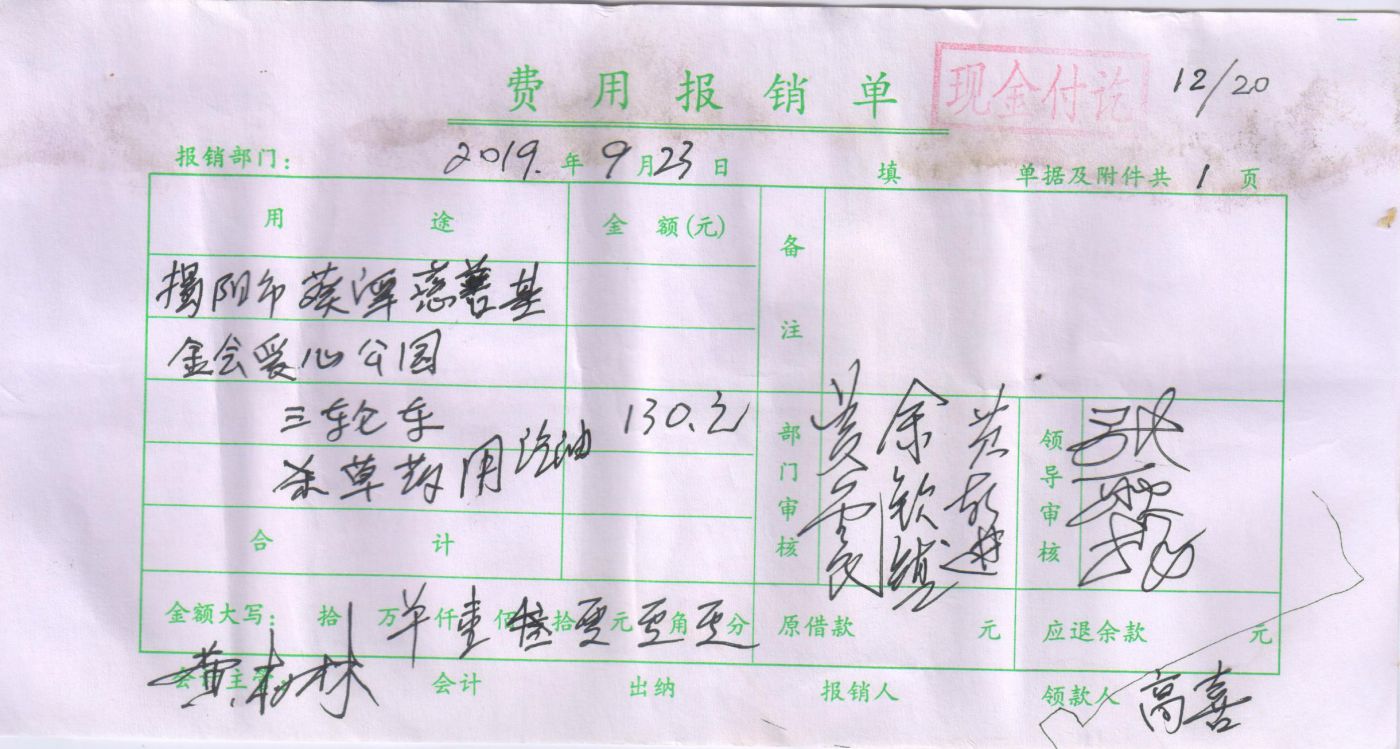 费用报销单
现金付讫
12/20
报销部门： 2019.年9月23日 填 单据及附件共1页
用途 金额(元) 备注
揭阳市葵潭慈善基
金会爱心公园
三轮车 130.元
杀草药用汽油
合计
部门审核 黄 余钦镇 黄
领导审核 张
金额大写： 拾 万 单仟壹佰叁拾零元零角零分 原借款 元 应退余款 元
会计主管 黄林 会计 出纳 报销人 领款人 高喜